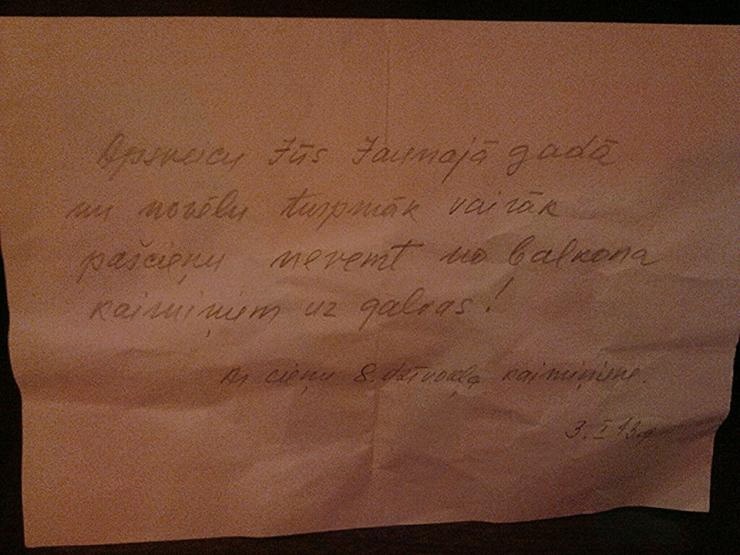 Apsveicu Jūs Jaunajā gadā
un novēlu turpmāk vairāk
pašcieņu nevemt no balkona
kaimiņiem uz galvas!
Ar cieņu 8. dzīvokļa kaimiņiene.
3. I 13.g